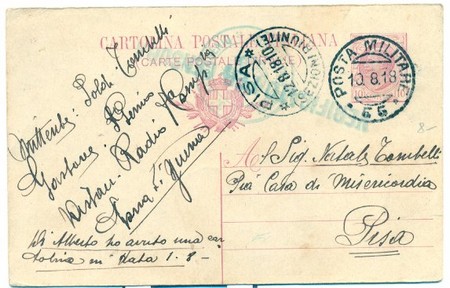 CARTOLINA POSTALE ITALIANA
CARTE POSTALE
PISA
12.8.18.10
POSTA MILITARE
10.8.18
55
8-
Mittente: Sold. Tombelli
Gastone
Radio
Zona di Guerra
A
Sig. Natale Tombelli
Pia Casa di Misericordia
Pisa
Di Alberto ho avuto una car
tolina in data 1.8-